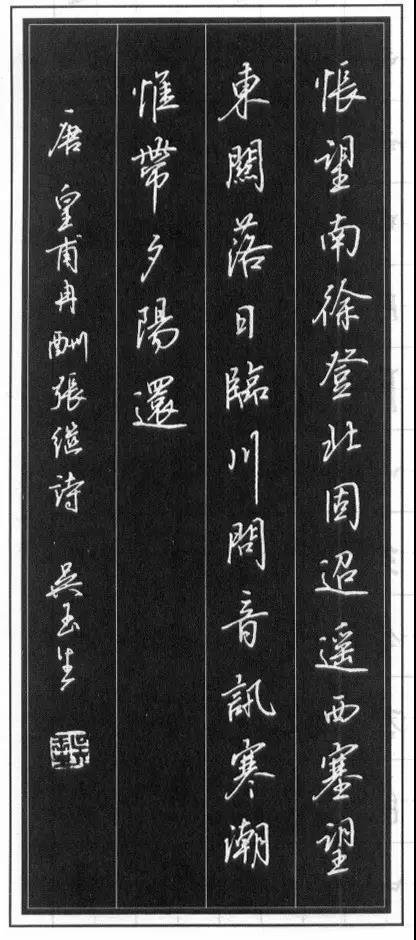 悵望南徐登北固迢遥西塞望
東關落日臨川問音訊寒潮
惟帶夕陽還
唐皇甫冉酬張继詩 吴玉生